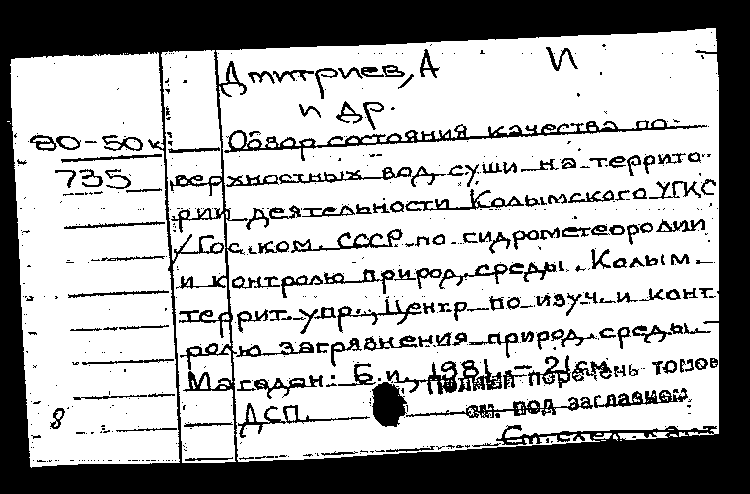 Дмитриев, А И
и др.
80-50к Обзор состояния качества по-
735 верхностных вод суши на террито-
рии деятельности Колымского УГКС
/ Гос. ком. СССР по гидрометеорологии
и контролю природ. среды. Колым.
террит. упр., Центр по изуч. и конт-
ролю загрязнения природ. среды. -
Магадан: Б.и., 1981. - 21см
Полный перечень томов
ДСП. см. под заглавием
8
См. след. карт